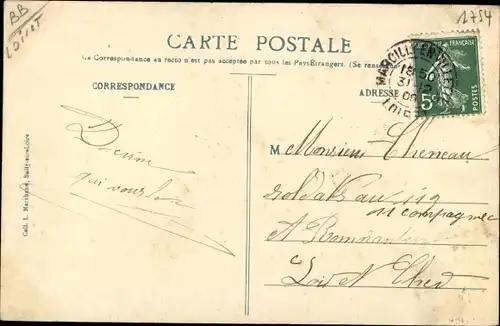 BB
Loiret
1754
CARTE POSTALE
La Correspondance au recto n'est pas acceptée par tous les Pays Étrangers. (Se renseigner
CORRESPONDANCE
ADRESSE
MARCILLY-EN-VILLETTE
31
LOIRET
FRANÇAISE
POSTES
5
M Monsieur Cheneau
soldat au 113
11 compagnie
A Romorantin
Loir et Cher
qui vous
Coll. L. Marchand, Sully-sur-Loire